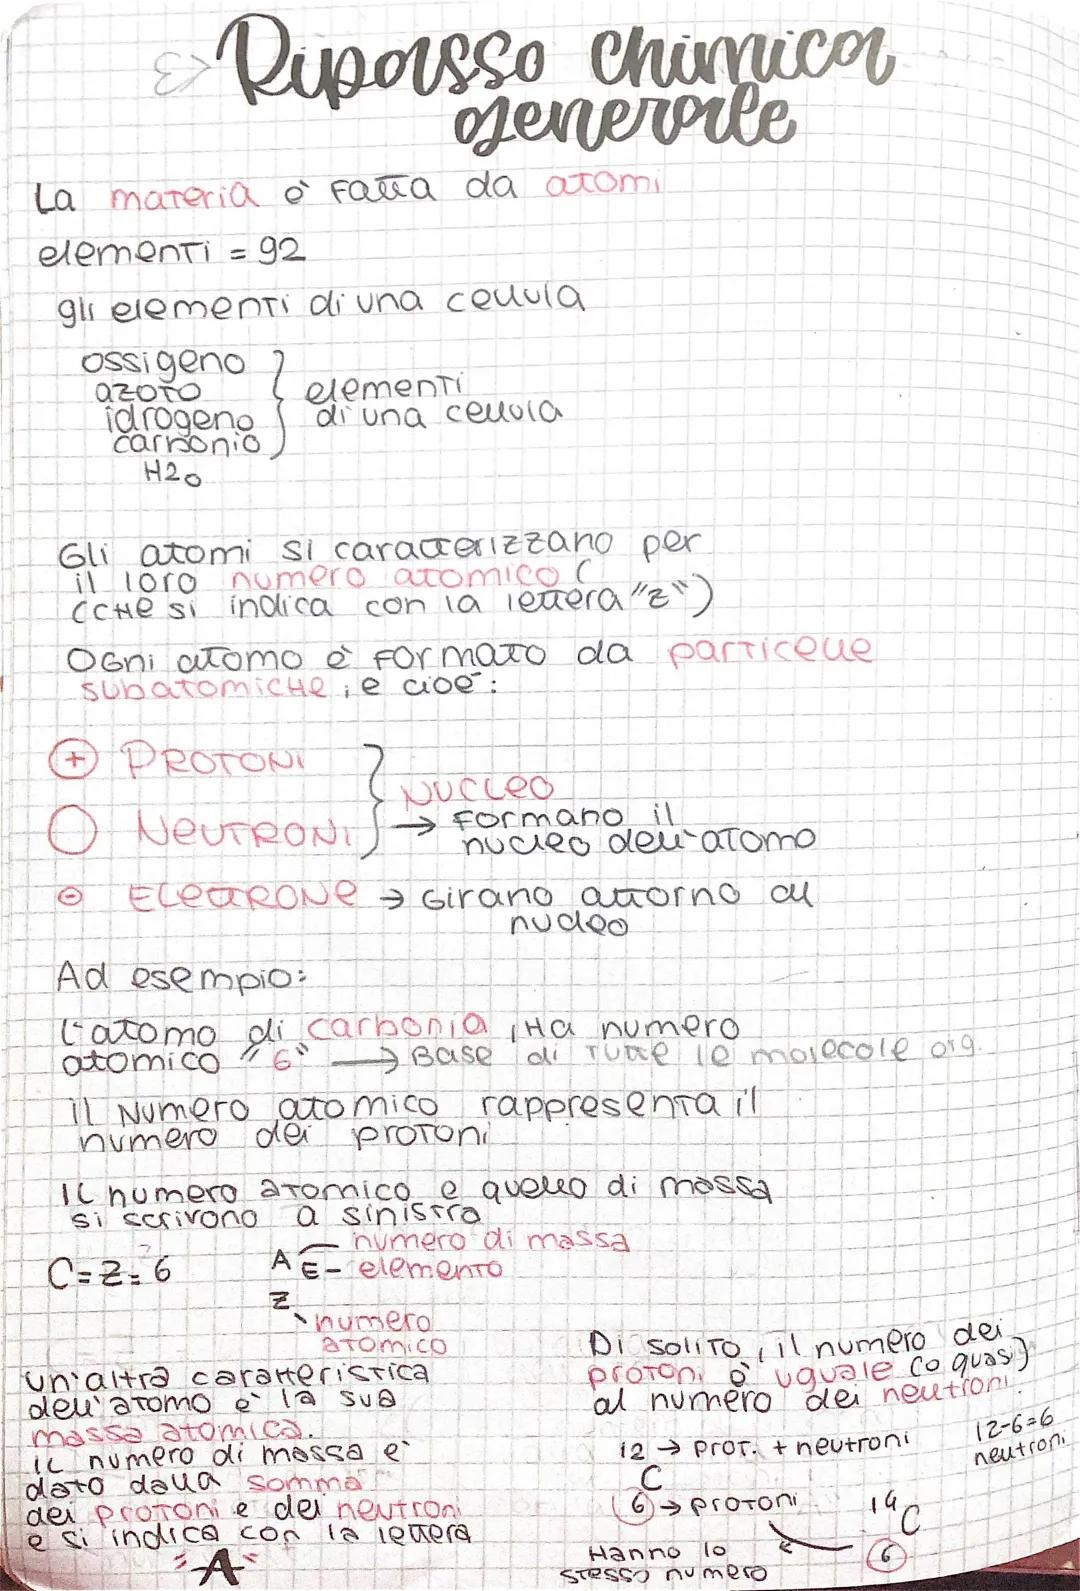 Ripasso chimica
generale
La materia è fatta da atomi
elementi = 92
gli elementi di una cellula
ossigeno
azoto
idrogeno
carbonio
elementi
di una cellula
H2O
Gli atomi si caratterizzano per
il loro numero atomico (
(che si indica con la lettera "z")
Ogni atomo è formato da particelle
subatomiche; e cioè:
+ PROTONI
NEUTRONI
NUCLEO
→ formano il
nucleo dell'atomo
- ELETTRONE → Girano attorno al
nucleo
Ad esempio:
l'atomo di carbonia, ha numero
atomico "6" → Base di tutte le molecole org.
il Numero atomico rappresenta il
numero dei protoni
Il numero atomico e quello di massa
si scrivono a sinistra
C=Z=6
A numero di massa
E- elemento
Z numero
atomico
un'altra caratteristica
dell'atomo è la sua
massa atomica.
il numero di massa è
dato dalla somma
dei protoni e dei neutroni
e si indica con la lettera
"A"
Di solito, il numero dei
protoni è uguale (o quasi)
al numero dei neutroni.
12 → prot. + neutroni
C
6 → protoni
12-6=6
neutroni
14 C
6
Hanno lo
stesso numero